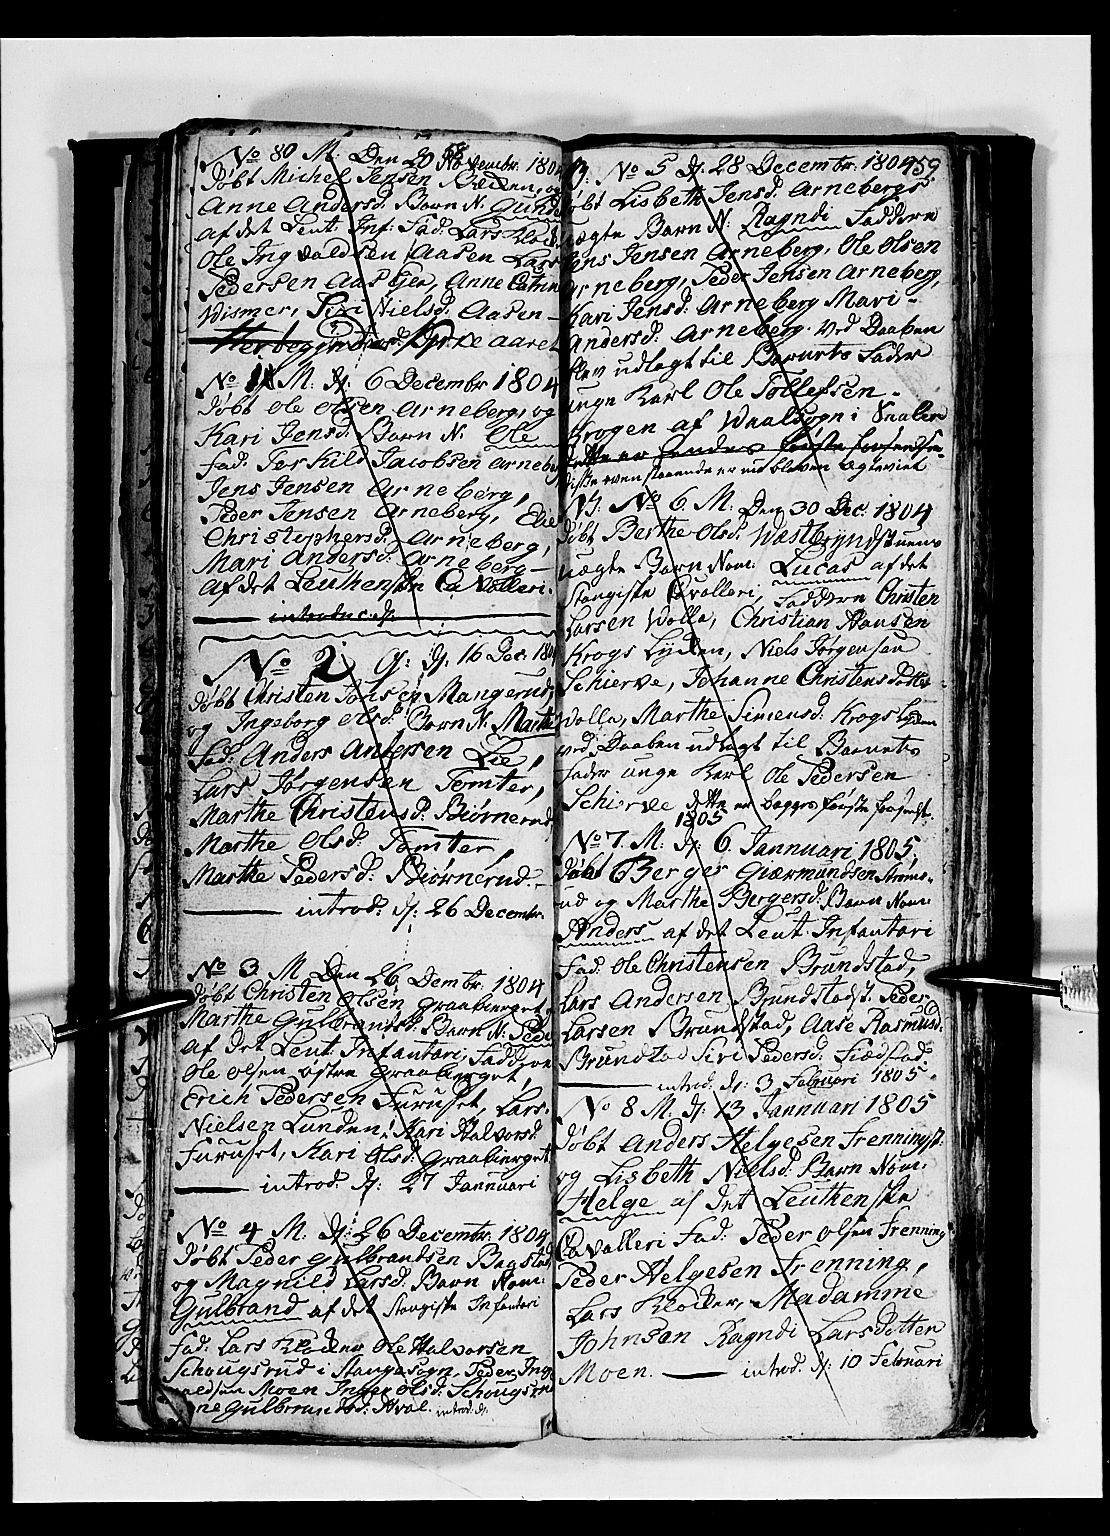 No 80 M: Den 20 Novembr. 1804
Døbt Michel Jensen og
Anne Andersd: Barn N:
af det Leut: Inf: Fad: Lars
Ole Ingvaldsen Aasen Lars
Pedersen Anne Catrin
Wismer, Siri Nielsd: Aasen
Her begyndes Kirke Aaret
No 1 M: d: 6 Decembr 1804
Døbt Ole Olsen Arneberg, og
Kari Jensd: Barn N: Ole
Fad: Terkild Jacobsen Arneberg
Jens Jensen Arneberg,
Peder Jensen Arneberg, Elie
Christophersd: Arneberg,
Mari Andersd: Arneberg
af det Leuthenske Cavalleri.
introduc: d:
No 2 d: 16 Dec: 1804
Døbt Christen Jonsen Mangerud,
og Ingeborg Olsd: Barn N: Marthe
Fad: Anders Andersen Lie,
Lars Jørgensen Tomter,
Marthe Christensd: Biørnerud
Marthe Olsd: Tomter,
Marthe Pedersd: Biørnerud.
introd: d: 26 Decembr.
No 3 M. Den 26 Dembr. 1804
Døbt Christen Olsen Graaberget,
Marthe Gulbrandsd: Barn N:
af det Leut: Infantari, Faddere
Ole Olsen østre Graaberget,
Erich Pedersen Furuset, Lars
Nielsen Lunden, Kari Halvorsd:
Furuset, Kari Olsd: Graaberget
introd: d: 27 Jannuari
No 4 M. d: 26 Decembr: 1804
Døbt Peder Gulbrandsen Bagstad
og Magnild Larsd: Barn Nom:
Gulbrand af det Stangiske Infantari
Fad: Lars Klocker Ole Halvorsen
Schougsrud i Stangesogn, Peder Ing
valdsen Moen Inger Olsd: Schougsrud
Gulbrandsd: Hval. introd: d:
59
No 5 d: 28 Decembr. 1804
Døbt Lisbeth Jensd: Arnebergs
uægte Barn N: Ragndi Faddere
Jens Jensen Arneberg, Ole Olsen
Arneberg, Peder Jensen Arneberg,
Kari Jensd: Arneberg Mari
Andersd: Arneberg. Ved Daaben
blev udlagt til Barnets Fader
unge Karl Ole Tollefsen
Krogen af Waalsogn i Vaaler
dette er hendes første
ovenstaaende er nu bleven ægteviet
No 6. M. Den 30 Dec: 1804
Døbt Berthe Olsd:
uægte Barn Nom: Lucas af det
Stangiske Cavalleri, Faddere Christen
Larsen Wolla, Christian Hansen
Krogs Lyken, Niels Jørgensen
Schierve, Johanne Christensdatter
Wolla, Marthe Simensd: Krogs Lyken
ved Daaben udlagt til Barnets
Fader unge Karl Ole Pedersen
Schierve dette er begges første
1805
No 7. M. d: 6 Jannuari 1805,
Døbt Berger Giærmundsen
ud og Marthe Bergersd: Barn Nom:
Anders af det Leut: Infantari
Fad: Ole Christensen Brundstad,
Lars Andersen Brundstadst: Peder
Larsen Brundstad, Aase Rasmusd:
Brundstad Siri Pedersd:
introd: d: 3 Februari 1805.
No 8 M. d: 13 Jannuari 1805
Døbt Anders Helgesen Frenningst:
og Lisbeth Nielsd: Barn Nom:
Helge af det Leuthenske
Cavalleri Fad: Peder Olsen Frenning
Peder Helgesen Frenning,
Lars Klocker, Madamme
Johnsen Ragndi Larsdotter
Moen. introd: d: 10 Februari